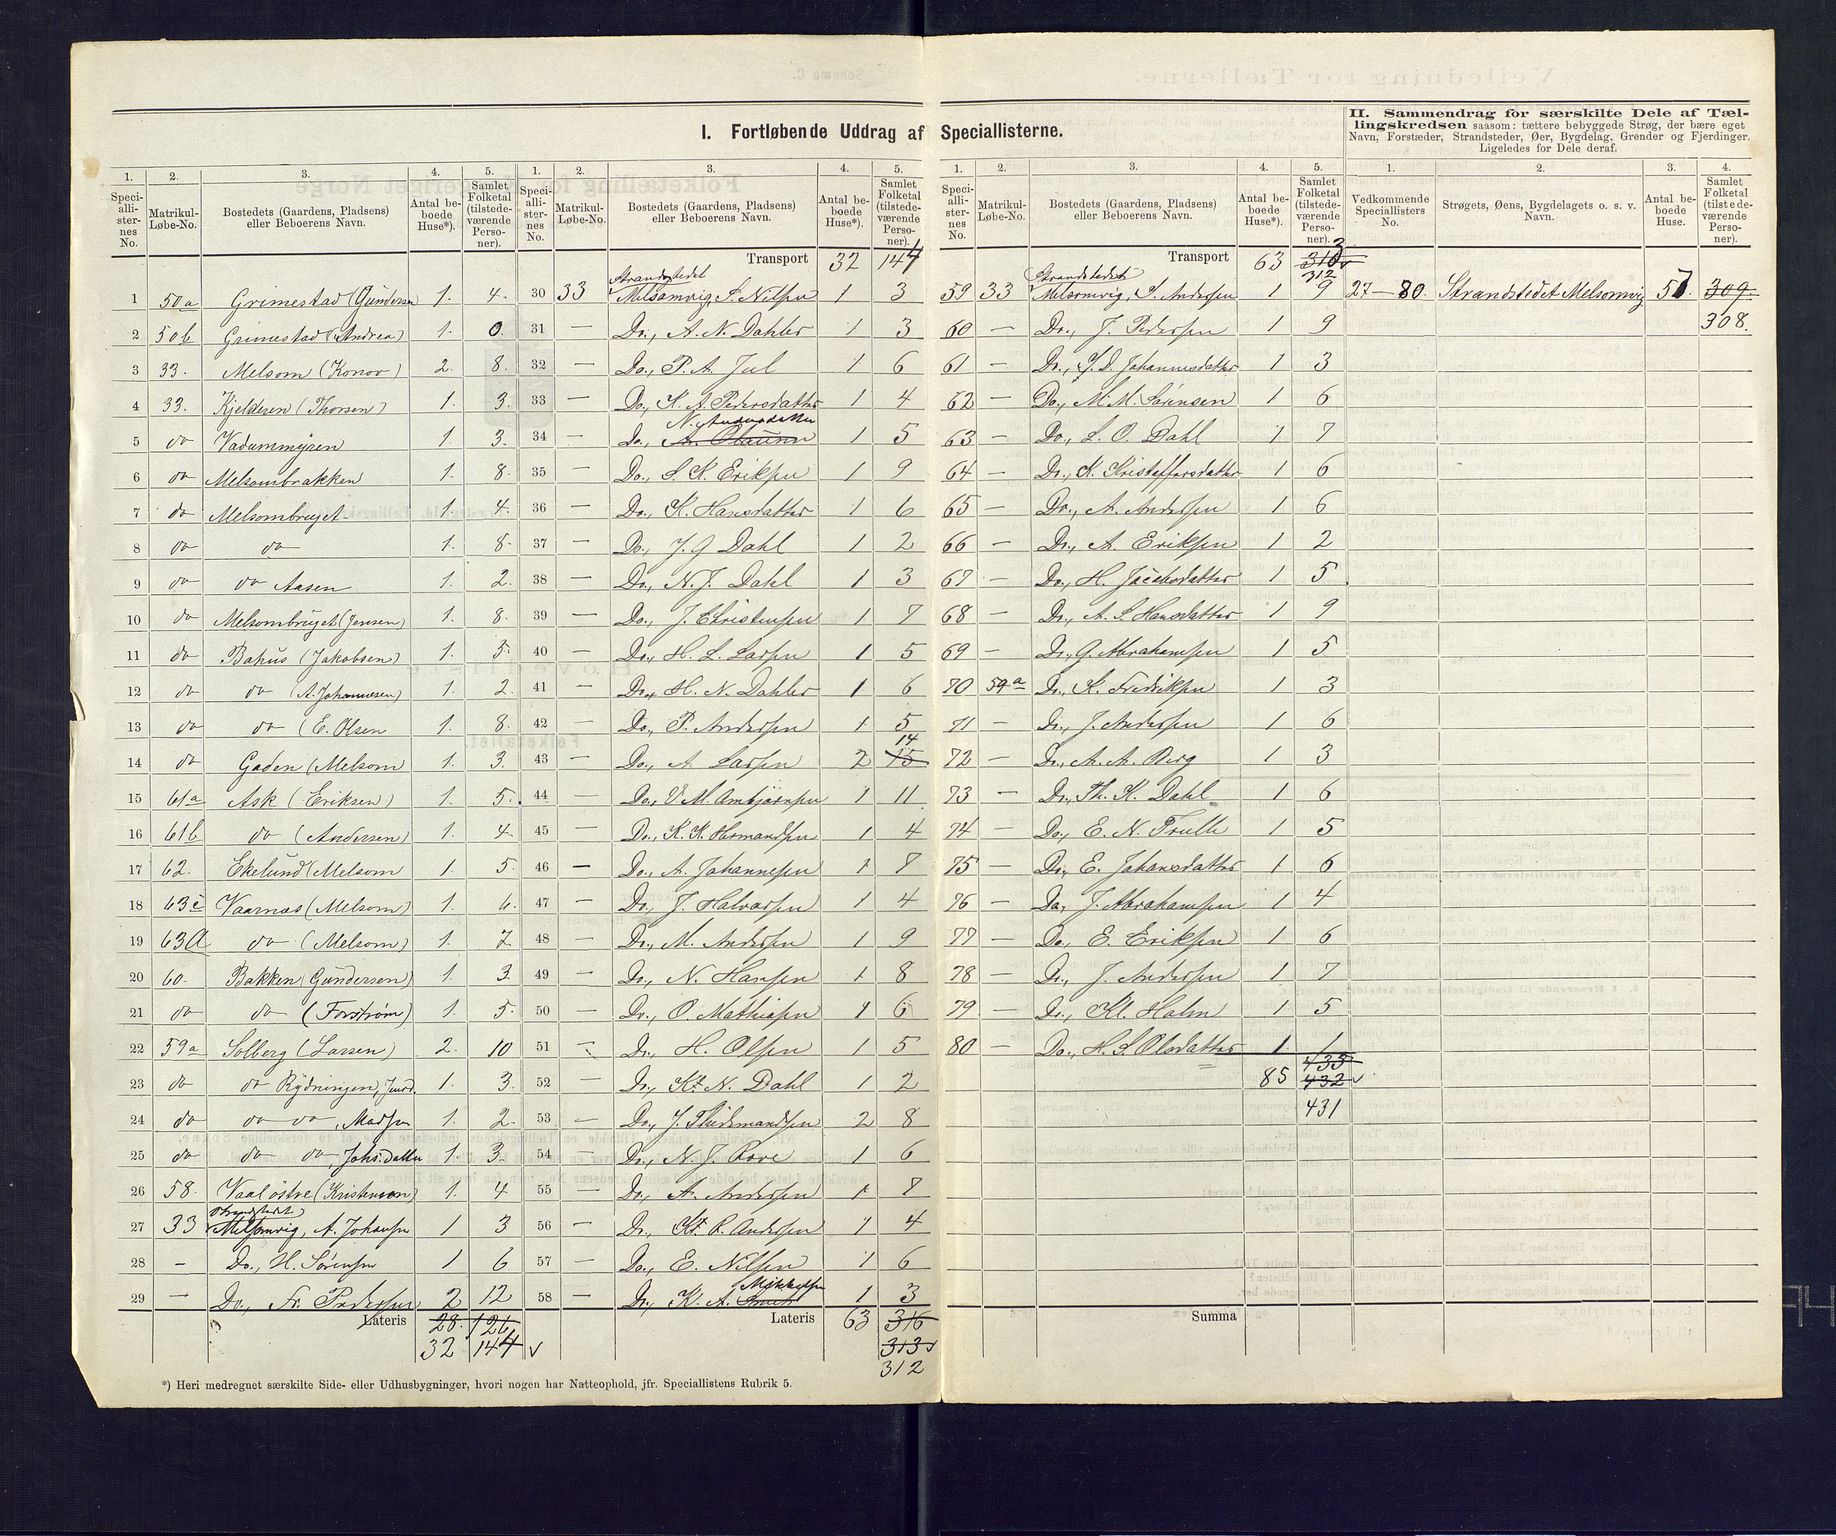 I. Fortløbende Uddrag af Speciallisterne.
II. Sammendrag for særskilte Dele af Tællingskredsen saasom: tættere bebyggede Strøg, der bære eget
Navn, Forstæder, Strandsteder, Øer, Bygdelag, Grender og Fjerdinger.
Ligeledes for Dele deraf.
1. 2. 3. 4. 5.
Speciallisternes No. Matrikul-Løbe-No. Bostedets (Gaardens, Pladsens) eller Beboerens Navn. Antal beboede Huse*). Samlet Folketal (tilstedeværende Personer).
1 50a Grimestad (Gundersen 1. 4.
2 50b Grimestad (Andrea) 1. 0.
3 33. Melsom (Konow) 2. 8.
4 33. Kjelderen (Thorsen) 1. 3.
5 do Vadummyren 1. 3.
6 do Melsombrakken 1. 8.
7 do Melsombruget 1. 4.
8 do do 1. 8.
9 do do Aasen 1. 2.
10 do Melsombruget (Jensen) 1. 8.
11 do Bahus (Jakobsen) 1. 5.
12 do do (A. Johannesen) 1. 2.
13 do do (E. Olsen 1. 8.
14 do Gaden (Melsom 1. 3.
15 61a Ask (Eriksen) 1. 5.
16 61b do (Andersen) 1. 4.
17 62. Ekelund (Melsom 1. 5.
18 63c Vaarnas (Melsom) 1. 6.
19 63a do (Melsom) 1. 7
20 60. Bakken (Gundersen) 1. 3.
21 do do (Forstrøm) 1. 5.
22 59a Solberg (Larsen) 2. 10
23 do do Rydningen, 1. 3.
24 do do do, Madsen 1. 2.
25 do do do, Johs.datter 1. 3.
26 58. Vaal østre (Kristensen) 1. 4
27 33 Strandstedet Melsomvig, A. Johansen 1 3
28 - Do., H. Sørensen 1 6
29 - Do., Fr. Pedersen 2 12
Lateris 28. 126
32 144
*) Heri medregnet særskilte Side- eller Udhusbygninger, hvori nogen har Natteophold, jfr. Speciallistens Rubrik 5.
1. 2. 3. 4. 5.
Speciallisternes No. Matrikul-Løbe-No. Bostedets (Gaardens, Pladsens) eller Beboerens Navn. Antal beboede Huse*). Samlet Folketal (tilstedeværende Personer).
Transport 32 144
30 33 Strandstedet Melsomvig, S. Nilsen 1 3
31 - Do., A. N. Dahler 1 3
32 - Do., P. A. Jul 1 6
33 - Do., K. A. Pedersdatter 1 4
34 - Do., N. 1 5
35 - Do., S. K. Eriksen 1 9
36 - Do., K. Hansdatter 1 6
37 - Do., J. G Dahl 1 2
38 - Do., N. J. Dahl 1 3
39 - Do., J. Christensen 1 7
40 - Do., H. L. Larsen 1 5
41 - Do., H. N. Dahler 1 6
42 - Do., P. Andersen 1 5
43 - Do., A Larsen 2 15 14
44 - Do., V. M. Ambjørnsen 1 11
45 - Do., K. K. Hermandsen 1 4
46 - Do., A. Johannesen 1 7
47 - Do., J. Halvorsen 1 4
48 - Do., M. Andersen 1 9
49 - Do., N. Hansen 1 8
50 - Do., O. Mathisen 1 6
51 - Do., H. Olsen 1 5
52 - Do., Kr. N. Dahl 1 2
53 - Do., J. Thidemandsen 2 8
54 - Do., N. J. Rove 1 6
55 - Do., A. Andersen 1 7
56 - Do., Kr. R. Andersen 1 4
57 - Do., E. Nilsen 1 6
58 - Do., K. A. Mikkelsen 1 3
Lateris 63 316
313
312
1. 2. 3. 4. 5.
Speciallisternes No. Matrikul-Løbe-No. Bostedets (Gaardens, Pladsens) eller Beboerens Navn. Antal beboede Huse*). Samlet Folketal (tilstedeværende Personer).
Transport 63 310 3
312
59 33 Strandstedet Melsomvig, S. Andersen 1 9
60 - Do., J. Pedersen 1 9
61 - Do., S. D. Johannesdatter 1 3
62 - Do., M. M. Sørensen 1 6
63 - Do., L. O. Dahl 1 7
64 - Do., K. Kristoffersdatter 1 6
65 - Do., A. Andersen 1 6
66 - Do., A. Eriksen 1 2
67 - Do., H. Jacobsdatter 1 5
68 - Do., A. S. Hansdatter 1 9
69 - Do., G. Abrahamsen 1 5
70 59a Do., K. Fredriksen 1 3
71 - Do., J. Andersen 1 6
72 - Do., A. A. Berg 1 3
73 - Do., Th. K. Dahl 1 6
74 - Do., E. N. Trulle 1 5
75 - Do., E. Johansdatter 1 6
76 - Do., J. Abrahamsen 1 4
77 - Do., E. Eriksen 1 6
78 - Do., J. Andersen 1 7
79 - Do., Kl. Holm 1 5
80 - Do., H. S. Olsdatter 1 1
433
85 432
431
Summa
1. 2. 3. 4.
Vedkommende Speciallisters No. Strøgets, Øens, Bygdelagets o. s. v. Navn. Antal beboede Huse. Samlet Folketal (tilstedeværende Personer).
27 - 80. Strandstedet Melsomvig 57. 309.
308.